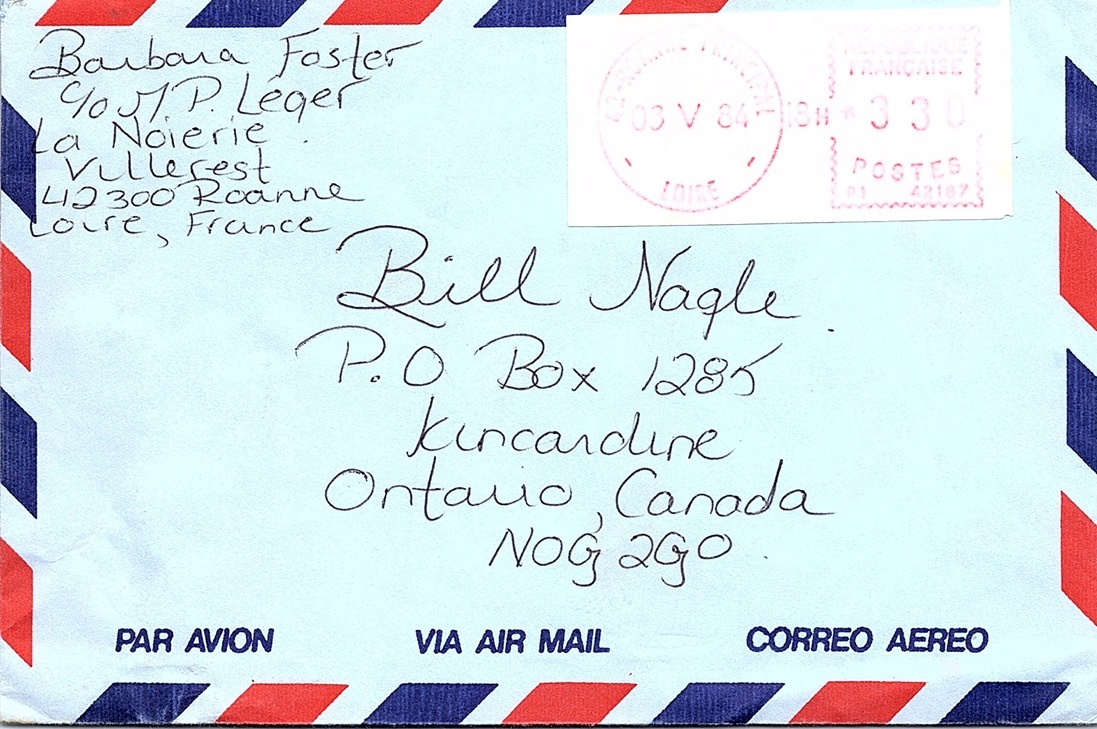 Barbara Foster
c/o J/P. Léger
La Noierie
Villerest
42300 Roanne
Loire, France
42-ROANNE PRINCIPAL
03 V 84 18H
LOIRE
RÉPUBLIQUE
FRANÇAISE
*330
POSTES
P1 42187
Bill Nagle
P.O Box 1285
Kincardine
Ontario, Canada
NOG 2GO
PAR AVION VIA AIR MAIL CORREO AEREO